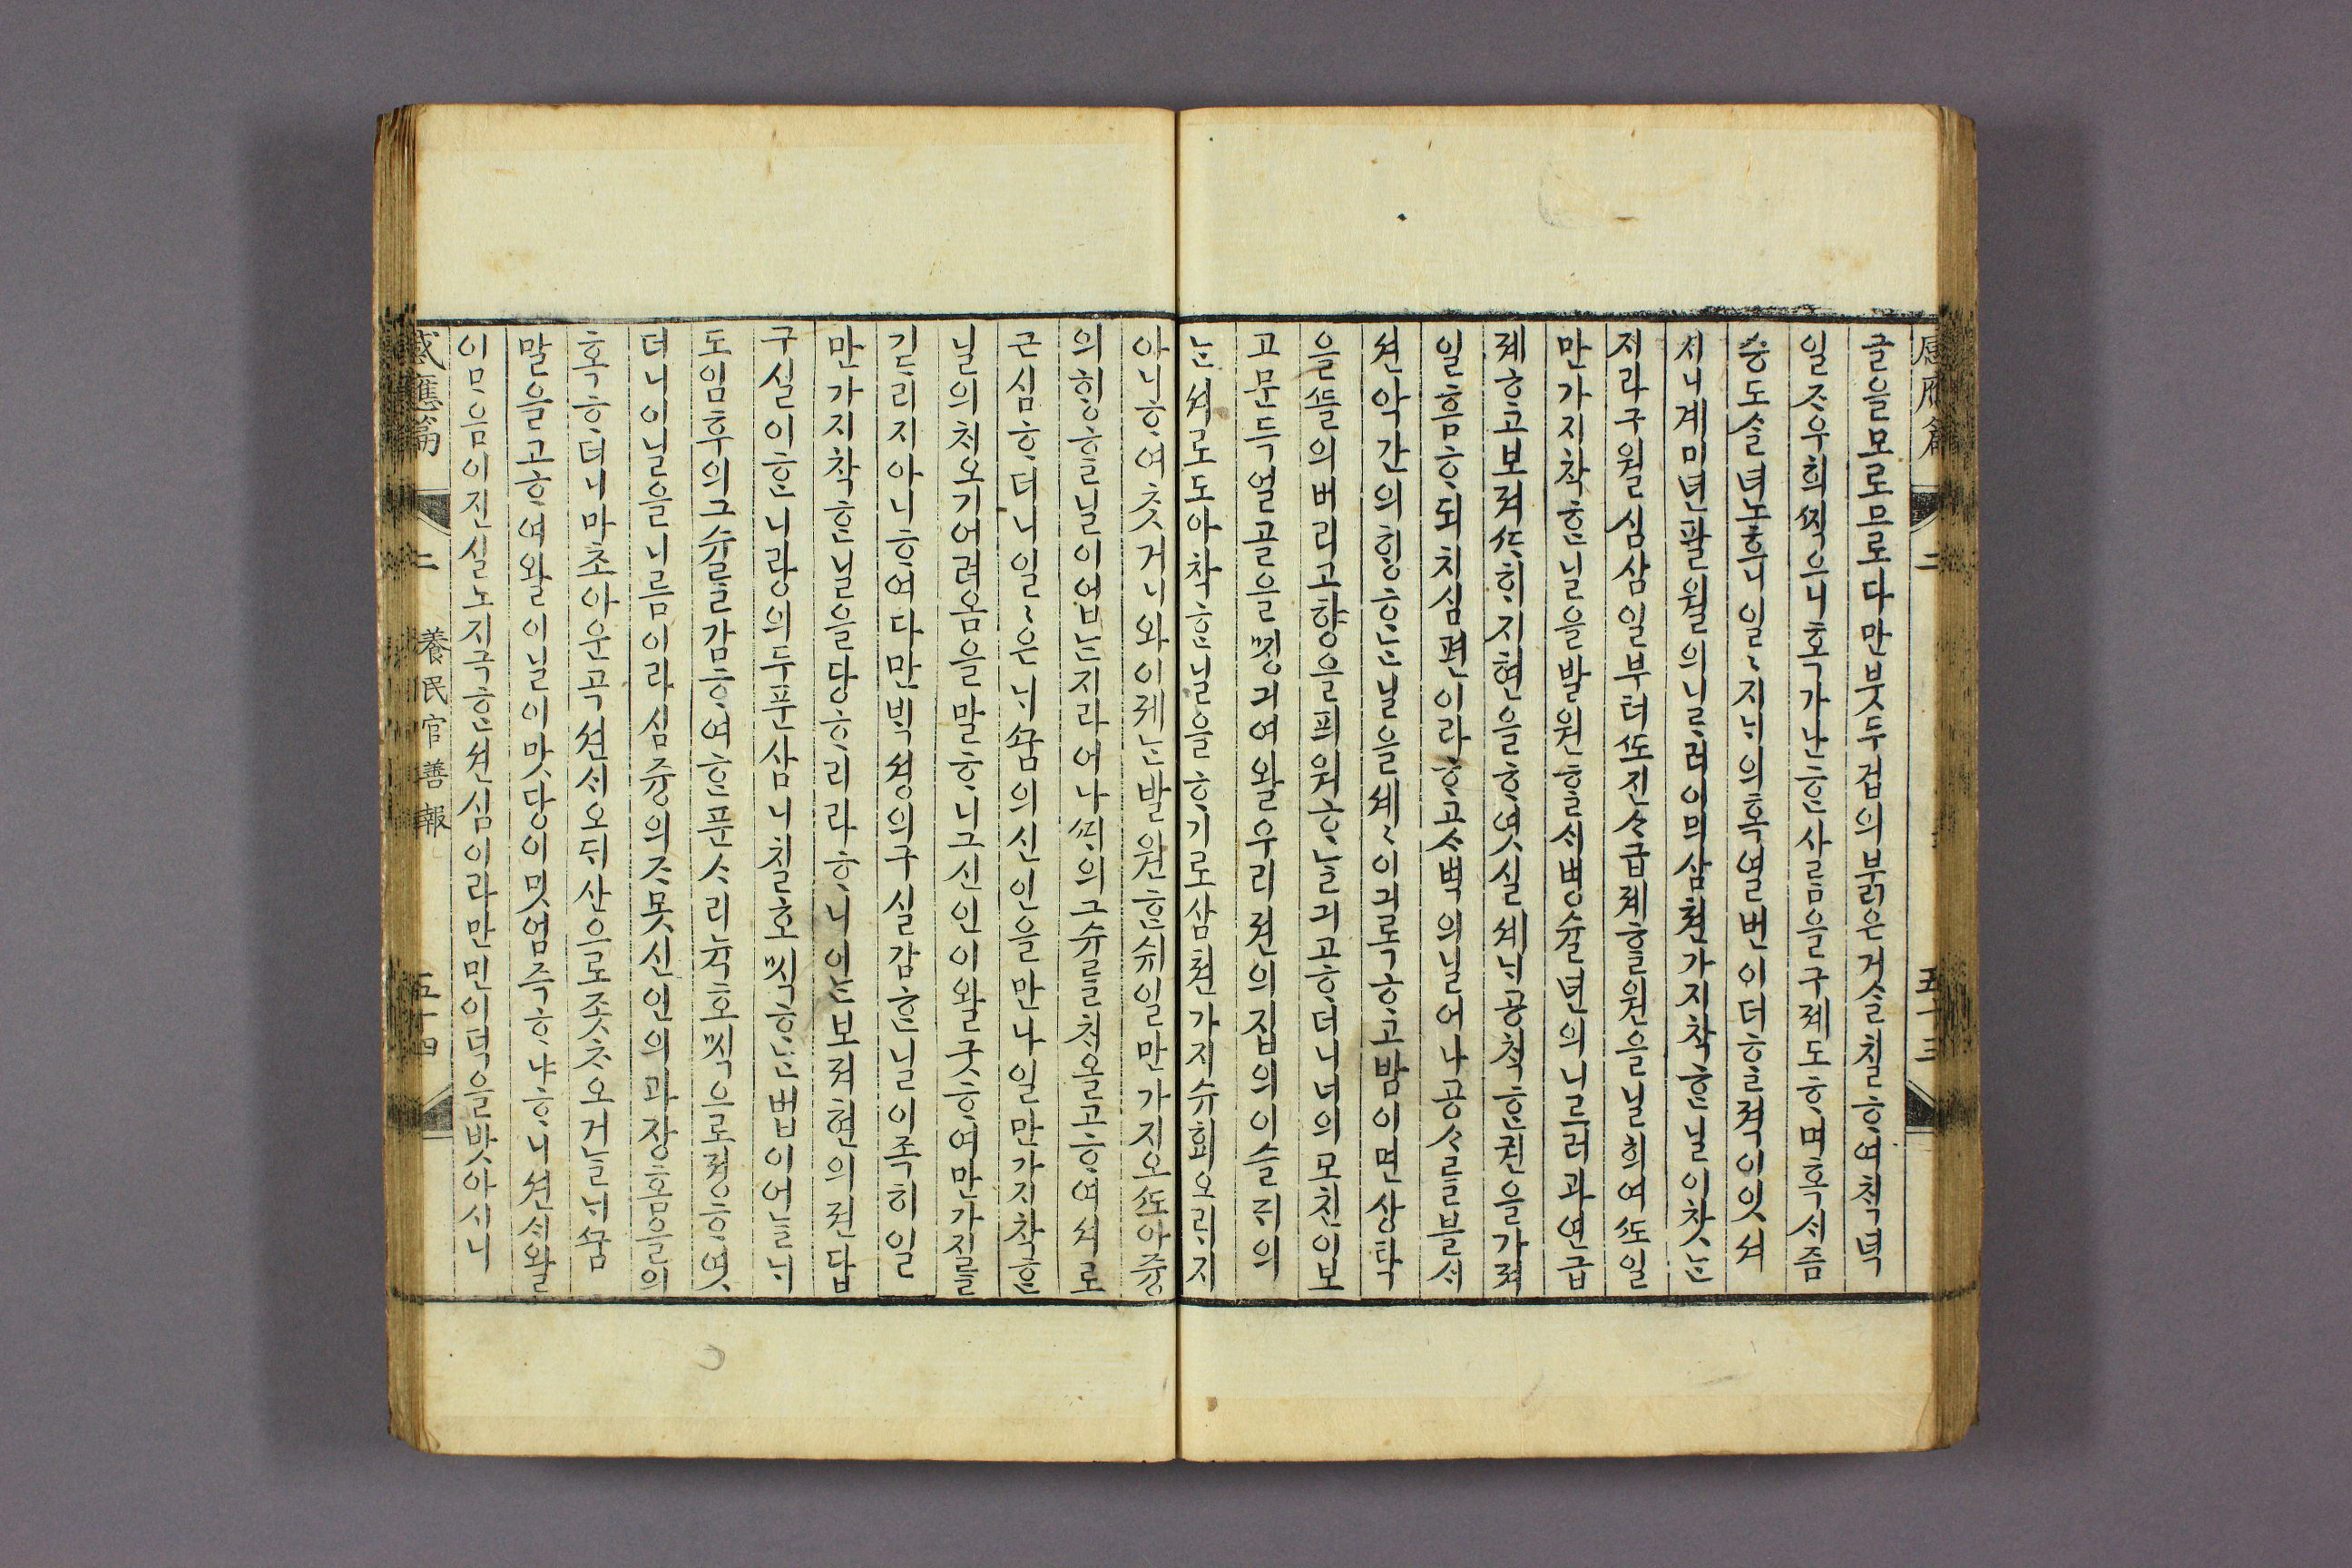 感應篇 二 五十三
글을모로므로다만붓두겁의부ᄅᆞᆰ은거ᄉᆞᆯ칠ᄒᆞ여칙력
일ᄌᆞ우희ᄶᅵᆨ으니혹가난ᄒᆞᆫ사ᄅᆞᆷ을구졔도ᄒᆞ며혹시즘
ᄉᆞᆼ도ᄉᆞᆯ녀노흐니일〻지ᄂᆡ의혹열번이더ᄒᆞᆯ젹이잇셔
시니계미년팔월의니르러이믜삼쳔가지착ᄒᆞᆫ닐이찻ᄂᆞᆫ
지라구월십삼일부터ᄯᅩ진ᄉᆞ급졔ᄒᆞᆯ원을닐희여ᄯᅩ일
만가지착ᄒᆞᆫ닐을발원ᄒᆞᆯᄉᆡ병슐년의니르러과연급
졔ᄒᆞ고보져ᄯᅡ희지현을ᄒᆞ엿실ᄉᆡᄂᆡ공칙ᄒᆞᆫ권을가져
일흠ᄒᆞ되치심편이라ᄒᆞ고ᄉᆡ벽의닐어나공ᄉᆞᄅᆞᆯ믈ᄉᆡ
션악간의ᄒᆡᆼᄒᆞᄂᆞᆫ닐을셰〻이긔록ᄒᆞ고밤이면상탁
을ᄯᅳᆯ의버리고향을픠워하ᄂᆞᆯ긔고ᄒᆞ더니너의모친이보
고문득얼골을ᄶᅵᆼ긔여왈우리젼의집의이슬ᄯᆡ의
ᄂᆞᆫ셔로도아착ᄒᆞᆫ닐을ᄒᆞ기로삼쳔가지슈회오ᄅᆡ지
아니ᄒᆞ여ᄎᆞᆺ거니와이졔ᄂᆞᆫ발원ᄒᆞᆫ쉬일만가지오ᄯᅩ아즁
의ᄒᆡᆼᄒᆞᆯ닐이업ᄂᆞᆫ지라어나ᄯᆡ의그슈ᄅᆞᆯᄎᆡ올고ᄒᆞ여셔로
근심ᄒᆞ더니일〻은ᄂᆡᄭᅮᆷ의신인을만나일만가지착ᄒᆞᆫ
닐의ᄎᆡ오기어려옴을말ᄒᆞ니그신인이왈굿ᄒᆞ여만가질ᄅᆞᆯ
기ᄃᆞ리지아니ᄒᆞ여다만ᄇᆡᆨ셩의구실감ᄒᆞᆫ닐이죡히일
만가지착ᄒᆞᆫ닐을당ᄒᆞ리라ᄒᆞ니이ᄂᆞᆫ보져현의젼답
구실이ᄒᆞᆫ니랑의두푼삼니칠호식ᄒᆞᄂᆞᆫ법이어ᄂᆞᆯᄂᆡ
도임후의그슈ᄅᆞᆯ감ᄒᆞ여ᄒᆞᆫ푼ᄉᆞ리뉵호식으로졍ᄒᆞ엿
더니이닐을니ᄅᆞᆷ이라심즁의ᄌᆞ못신인의과장ᄒᆞᆷ을의
혹ᄒᆞ더니마초아운곡션ᄉᆡ오ᄃᆡ산으로좃ᄎᆞ오거ᄂᆞᆯᄂᆡᄭᅮᆷ
말을고ᄒᆞ여왈이닐이맛당이밋엄즉ᄒᆞ냐ᄒᆞ니션ᄉᆡ왈
이ᄆᆞ음이진실노지극ᄒᆞᆫ션심이라만민이덕을밧아시니
感應篇 二 養民官善報 五十四